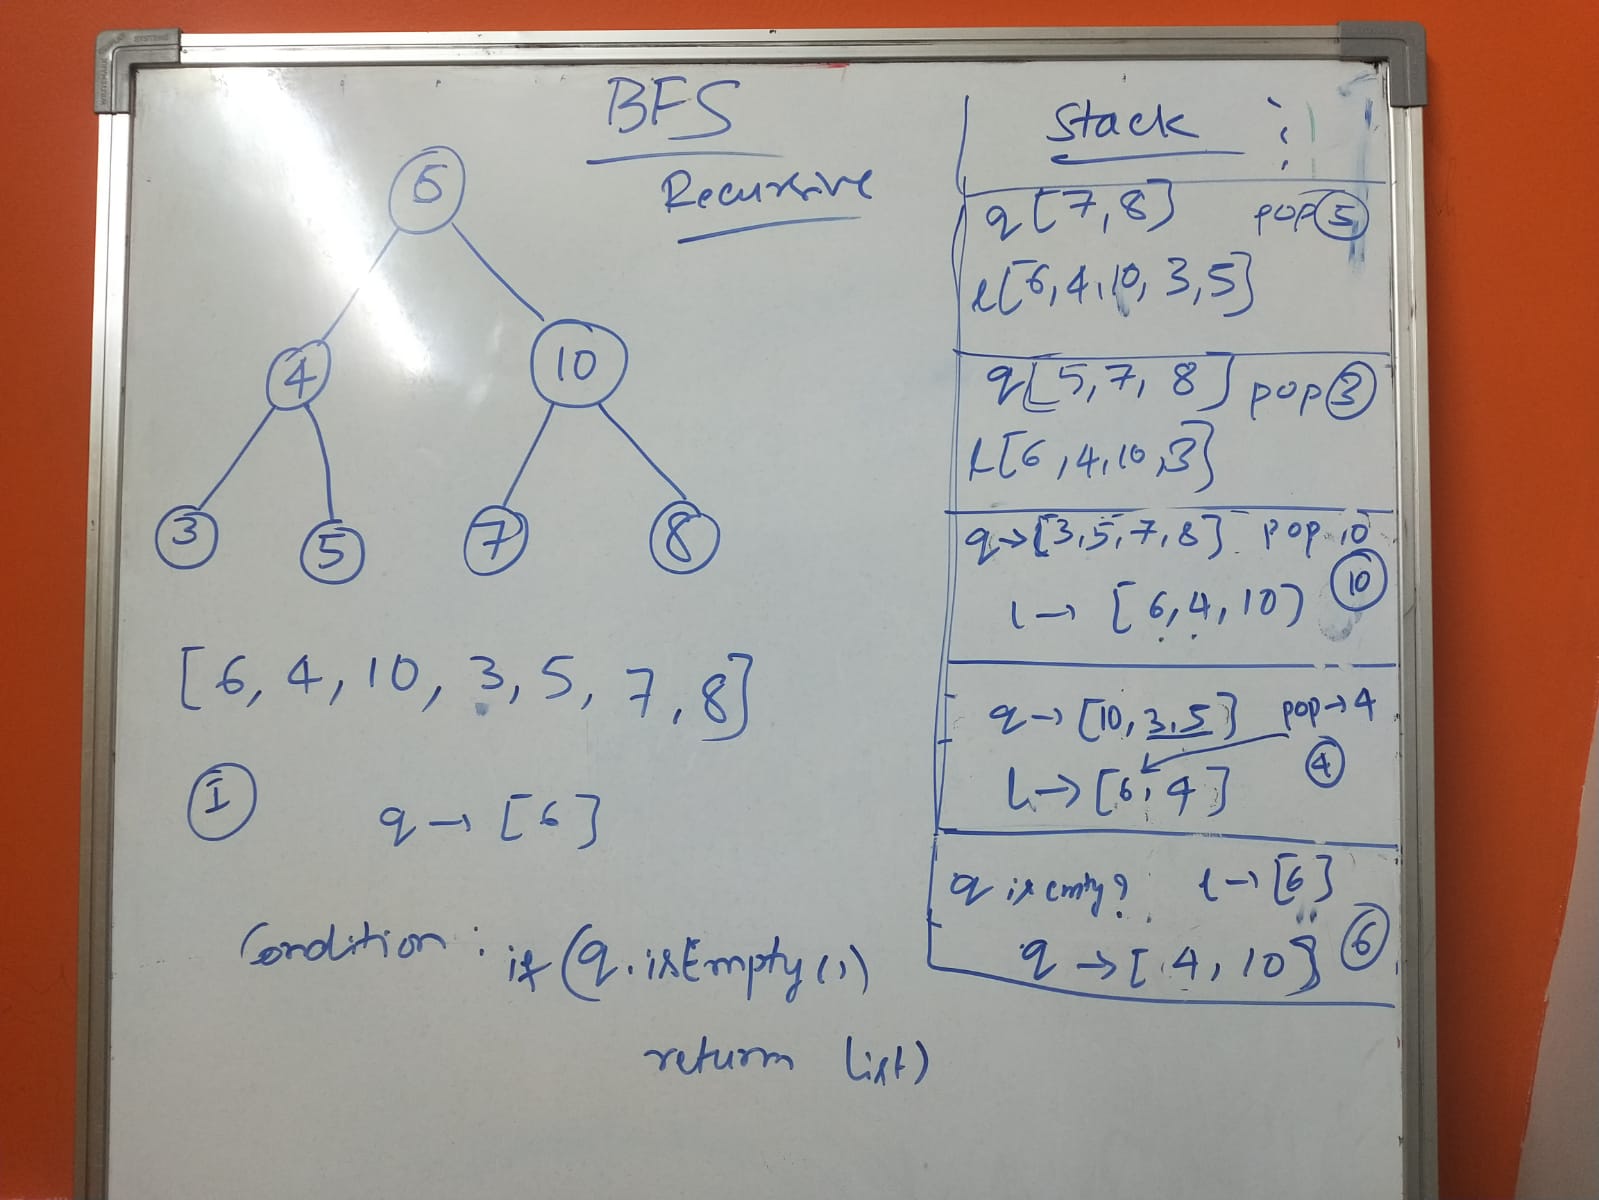 BFS
Recursive
6
4
10
3
5
7
8
[6, 4, 10, 3, 5, 7, 8]
I
q → [6]
Condition : if (q.isEmpty()
return list)
Stack :
q[7,8] pop 5
l[6,4,10,3,5]
q[5,7,8] pop 3
l[6,4,10,3]
q→[3,5,7,8] pop 10
10
l→ [6,4,10]
q→ [10,3,5] pop→4
4
l→[6,4]
q is emty? l→[6]
q →[4,10] 6